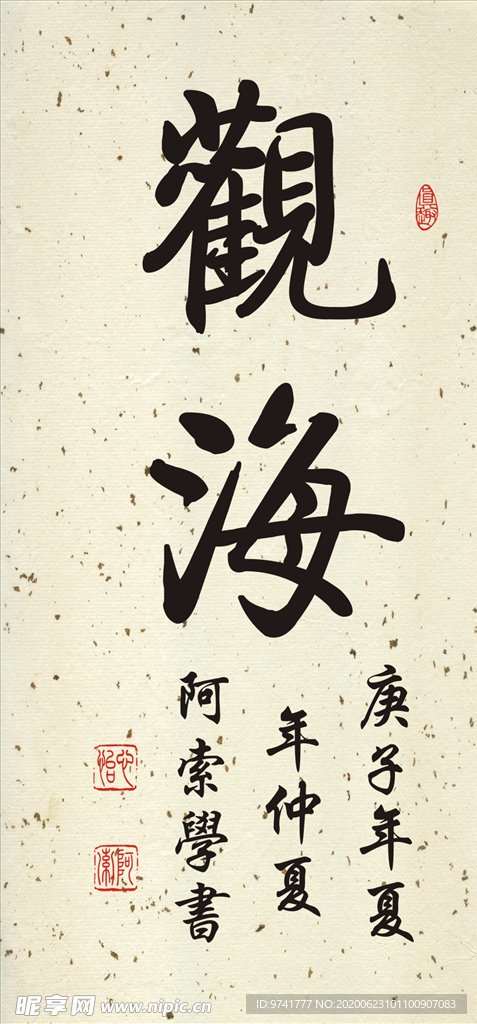 觀海
庚子年夏
年仲夏
阿索學書
真趣
心怡
阿索
昵享网 www.nipic.cn
ID:9741777 NO:20200623101100907083